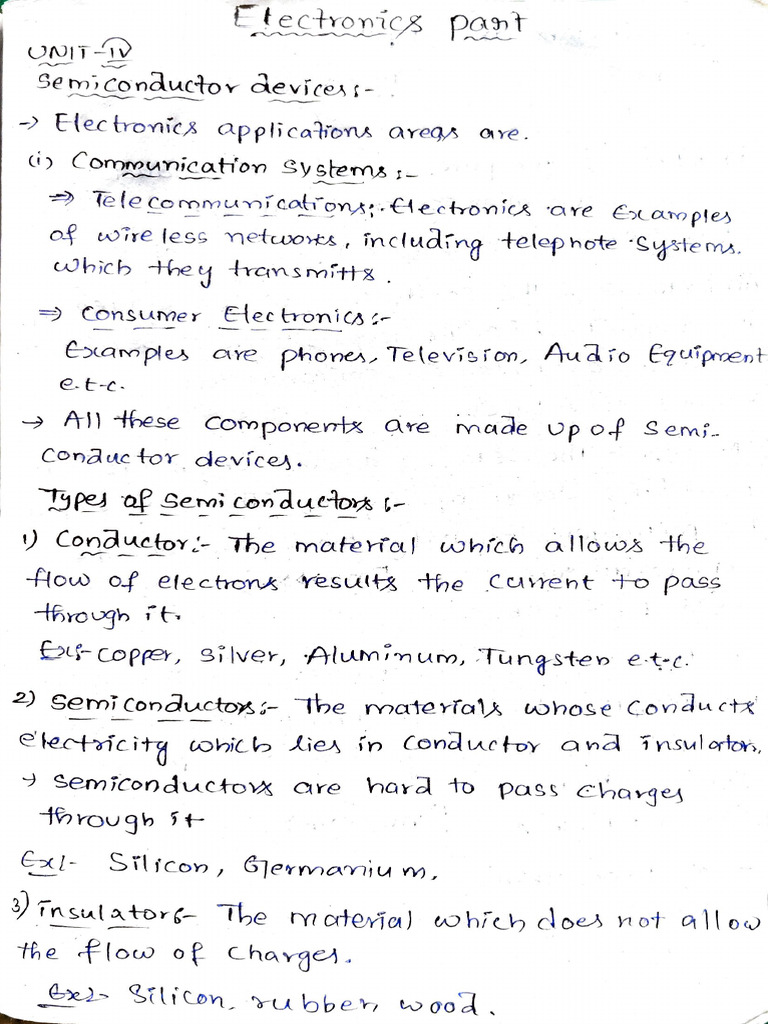 Electronics part
UNIT-IV
Semiconductor devices:-
→ Electronics applications areas are.
(i) Communication systems:-
⇒ Telecommunications:. Electronics are Examples
of wireless networks, including telephote systems.
which they transmitts.
⇒ Consumer Electronics:-
Examples are phones, Television, Audio Equipment
e.t.c.
→ All these components are made up of semi-
conductor devices.
Types of semiconductors:-
1) Conductor:- The material which allows the
flow of electrons results the current to pass
through it.
Ex:- copper, silver, Aluminum, Tungsten e.t.c.
2) Semiconductors:- The materials whose conducts
electricity which lies in conductor and insulators.
→ Semiconductors are hard to pass charges
through it
Ex:- Silicon, Germanium,
3) insulators:- The material which does not allow
the flow of charges.
Ex:- Silicon, rubber, wood.